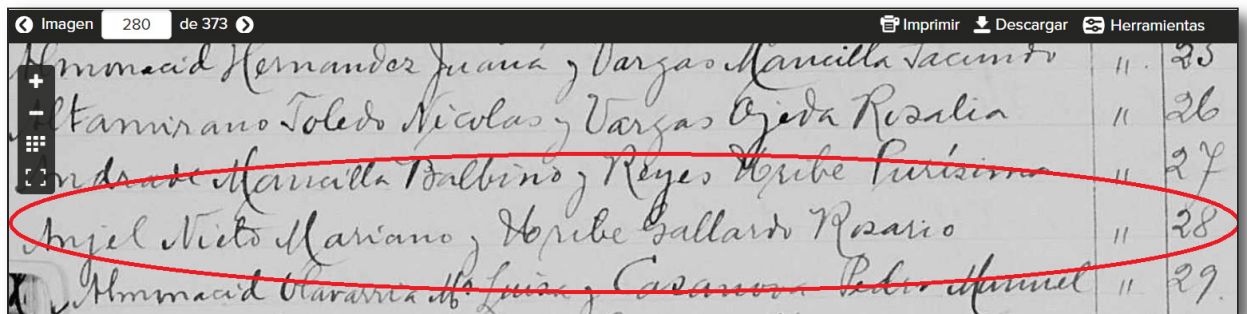 Imagen 280 de 373 Imprimir Descargar Herramientas
Almonacid Hernandez Juana y Vargas Mancilla Facundo " 25
Altamirano Toledo Nicolas y Vargas Ojeda Rosalia " 26
Andrade Mancilla Balbino y Reyes Uribe Purísima " 27
Anjel Nieto Mariano y Uribe Gallardo Rosario " 28
Almonacid Olavarria Mª Luisa y Casanova Pedro Manuel " 29.